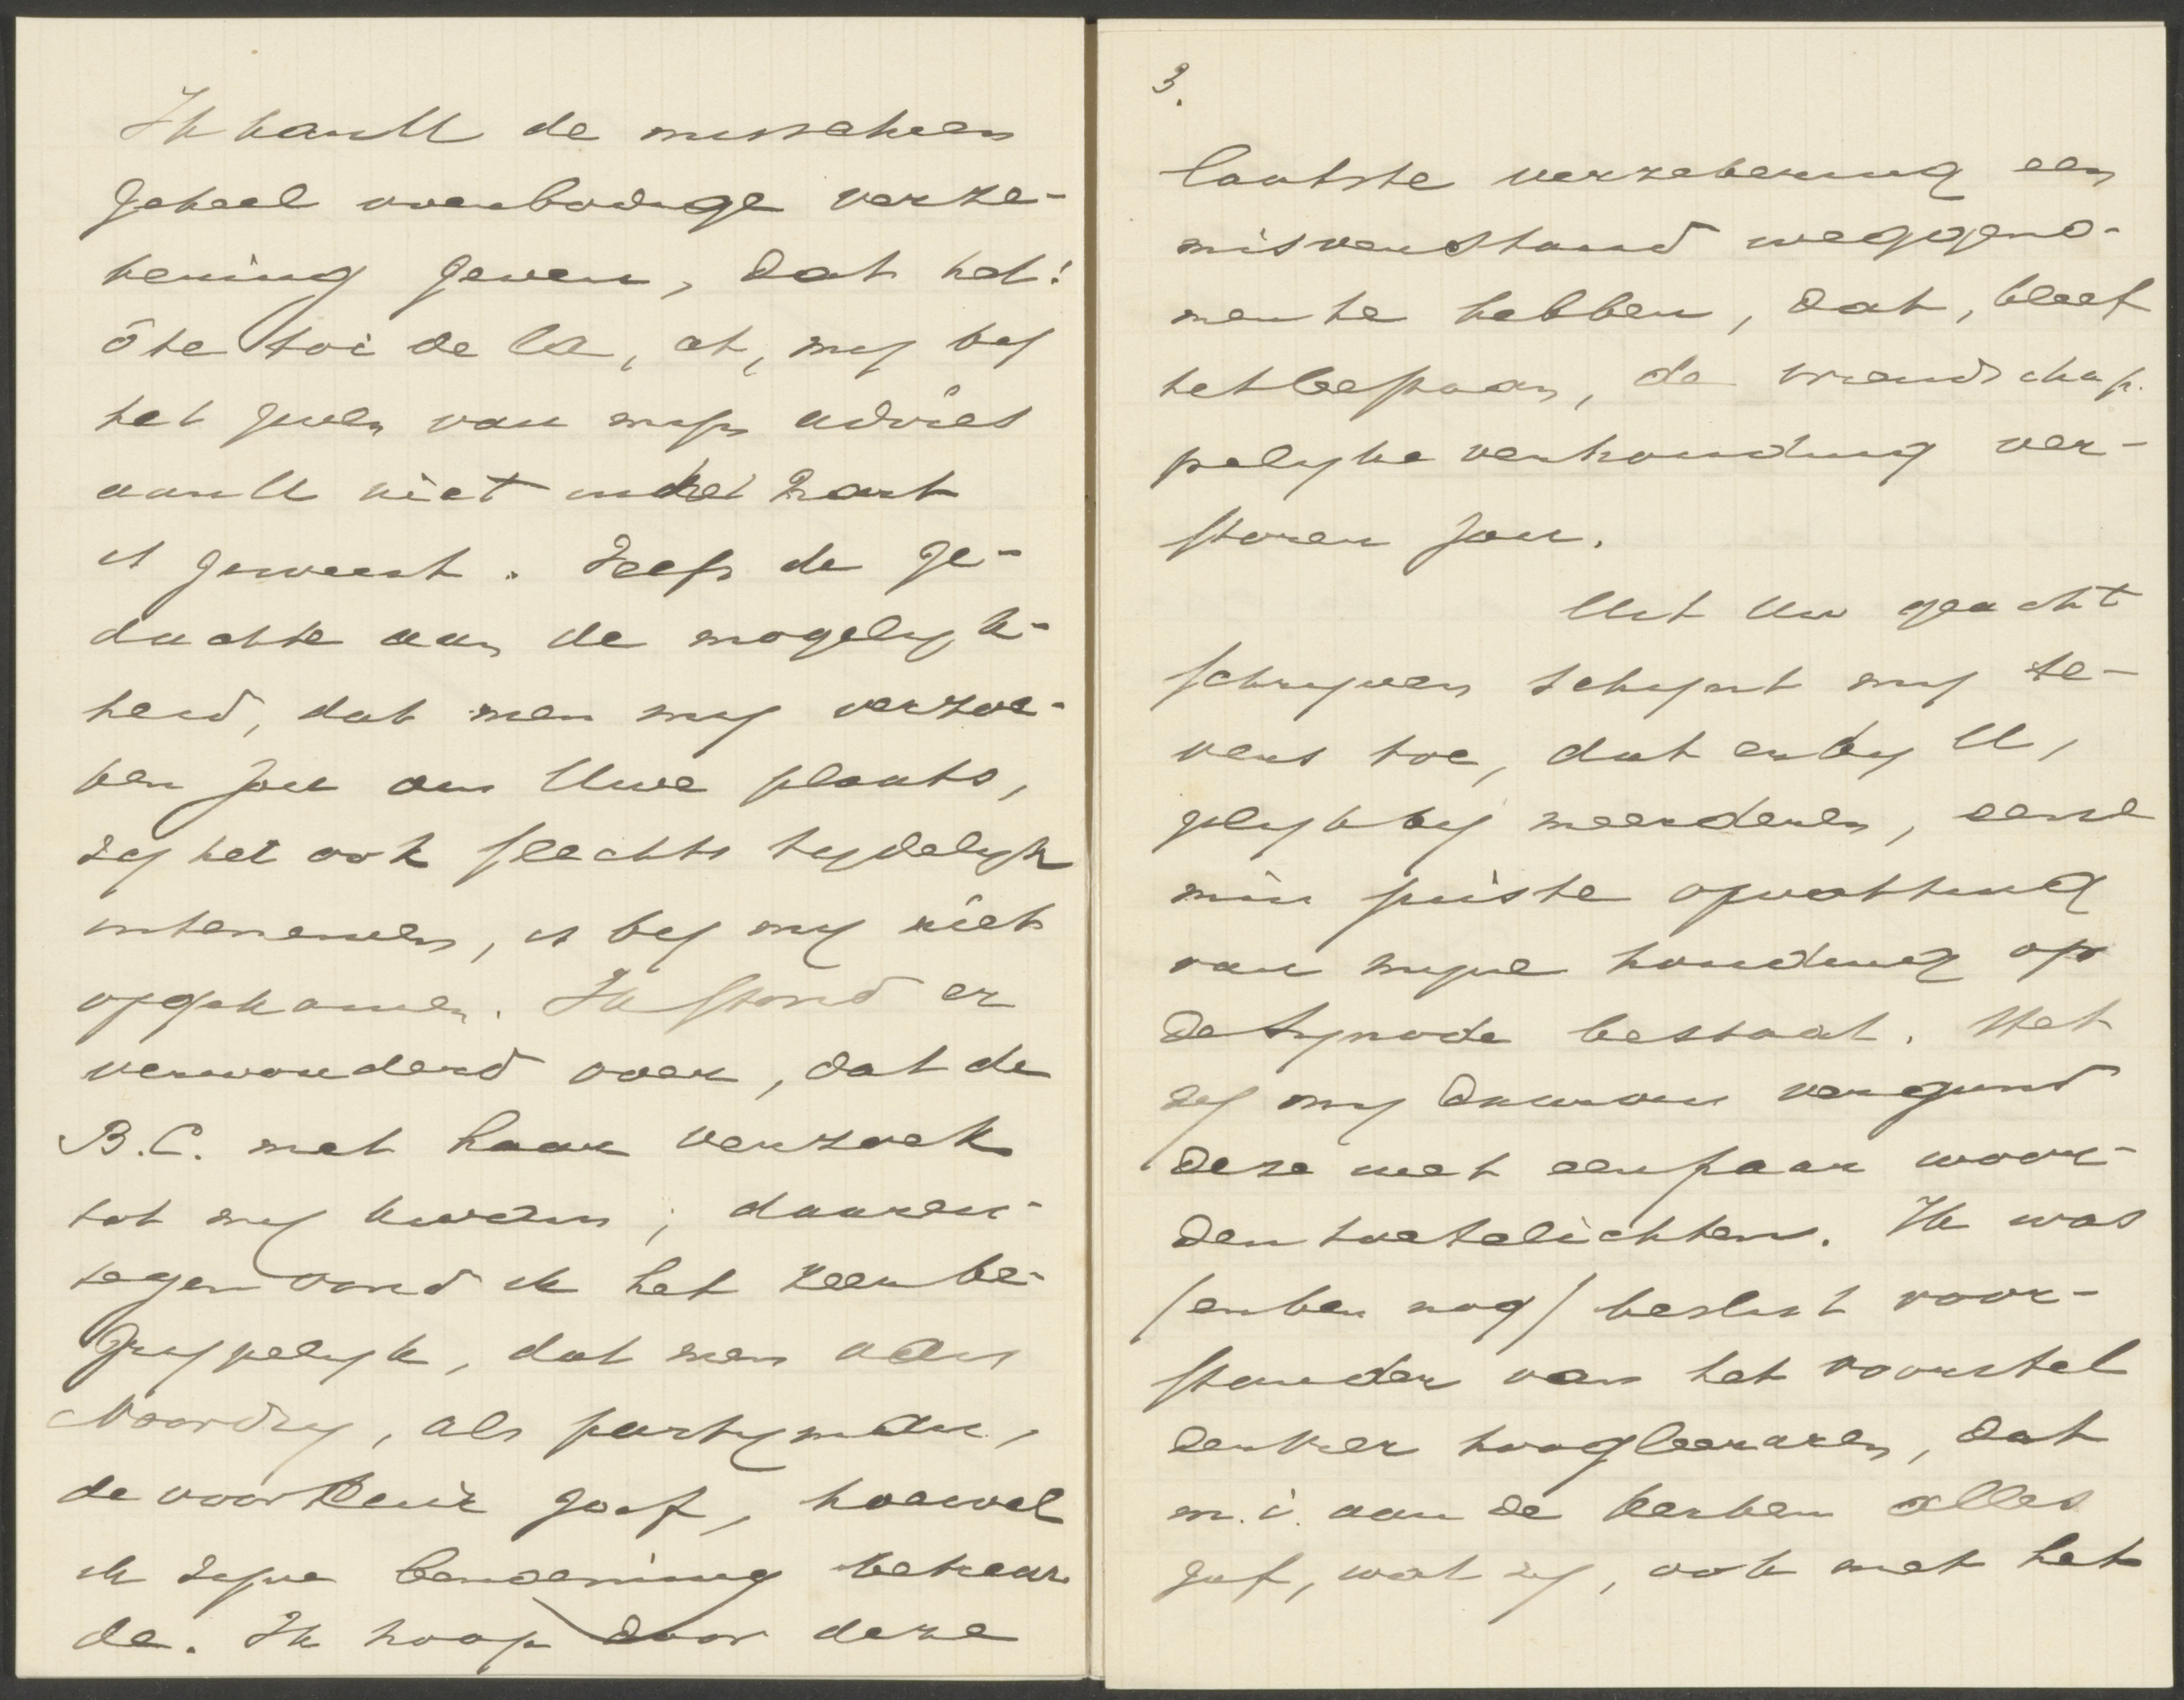 Ik kan U de misschien
geheel overbodige verze-
kering geven, dat het:
ôte toi de là, etc, mij bij
het geven van mijn advies
aan U niet in het hart
is geweest. Zelfs de ge-
dachte aan de mogelijk-
heid, dat men mij verzoe-
ken zou om Uwe plaats,
zij het ook slechts tijdelijk
intenemen, is bij mij niet
opgekomen. Ik stond er
verwonderd over, dat de
B.C. met haar verzoek
tot mij kwam; daaren-
tegen vond ik het zeer be-
grijpelijk, dat men aan
Noordzij, als partijman,
de voorkeur gaf, hoewel
ik zijne benoeming betreur
de. Ik hoop door deze
3.
laatste verzekering een
misverstand weggeno-
men te hebben, dat, bleef
het bestaan, de vriendschap-
pelijke verhouding ver-
storen zou.
Uit Uw geacht
schrijven schijnt mij te-
vens toe, dat er bij U,
gelijk bij meerderen, eene
min juiste opvatting
van mijne houding op
de Synode bestaat. Het
zij mij daarom vergund
deze met een paar woor-
den toetelichten. Ik was
(en ben nog) beslist voor-
stander van het voorstel
der vier hoogleeraren, dat
m.i. aan de kerken alles
gaf, wat zij, ook met het